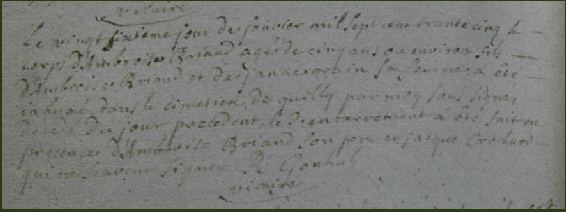 vicaire
Le vingt sixieme jour de janvier mil sept cent trante cinq le
corps d'Ambroise Briand agé de cinq ans ou environ fils
d'Ambroise Briand et de Janne sa femme a été
inhumé dans le cimetiere de quilly par moy sous signé
du jour precedent, le dit enterrement a été fait en
presences d'Ambroise Briand son pere et jacque
qui ne scavent signer R.
vicaire